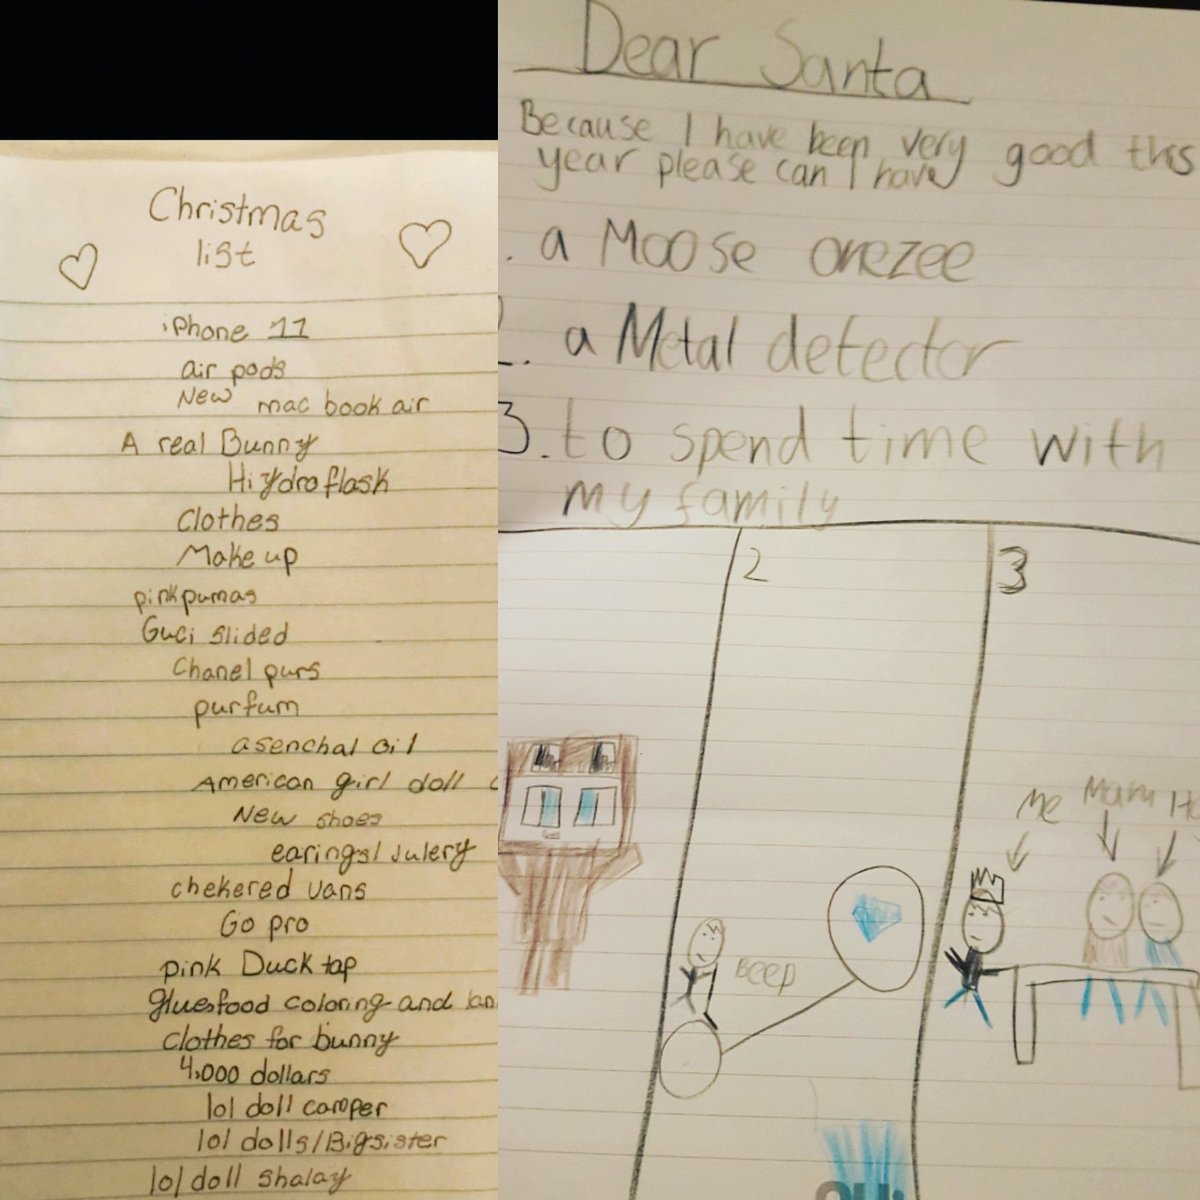 Christmas
list
iPhone 11
air pods
New mac book air
A real Bunny
Hiydroflask
Clothes
Make up
pink pumas
Guci slided
Chanel purs
purfum
asenchal oil
American girl doll
New shoes
earings/Julery
chekered vans
Go pro
pink Duck tap
glue,food coloring and
clothes for bunny
4,000 dollars
lol doll camper
lol dolls/Bigsister
lol doll shalay
Dear Santa
Because I have been very good this
year please can I have
. a Moose onezee
2. a Metal detector
3. to spend time with
my family
2
3
Me Mam
BEEP